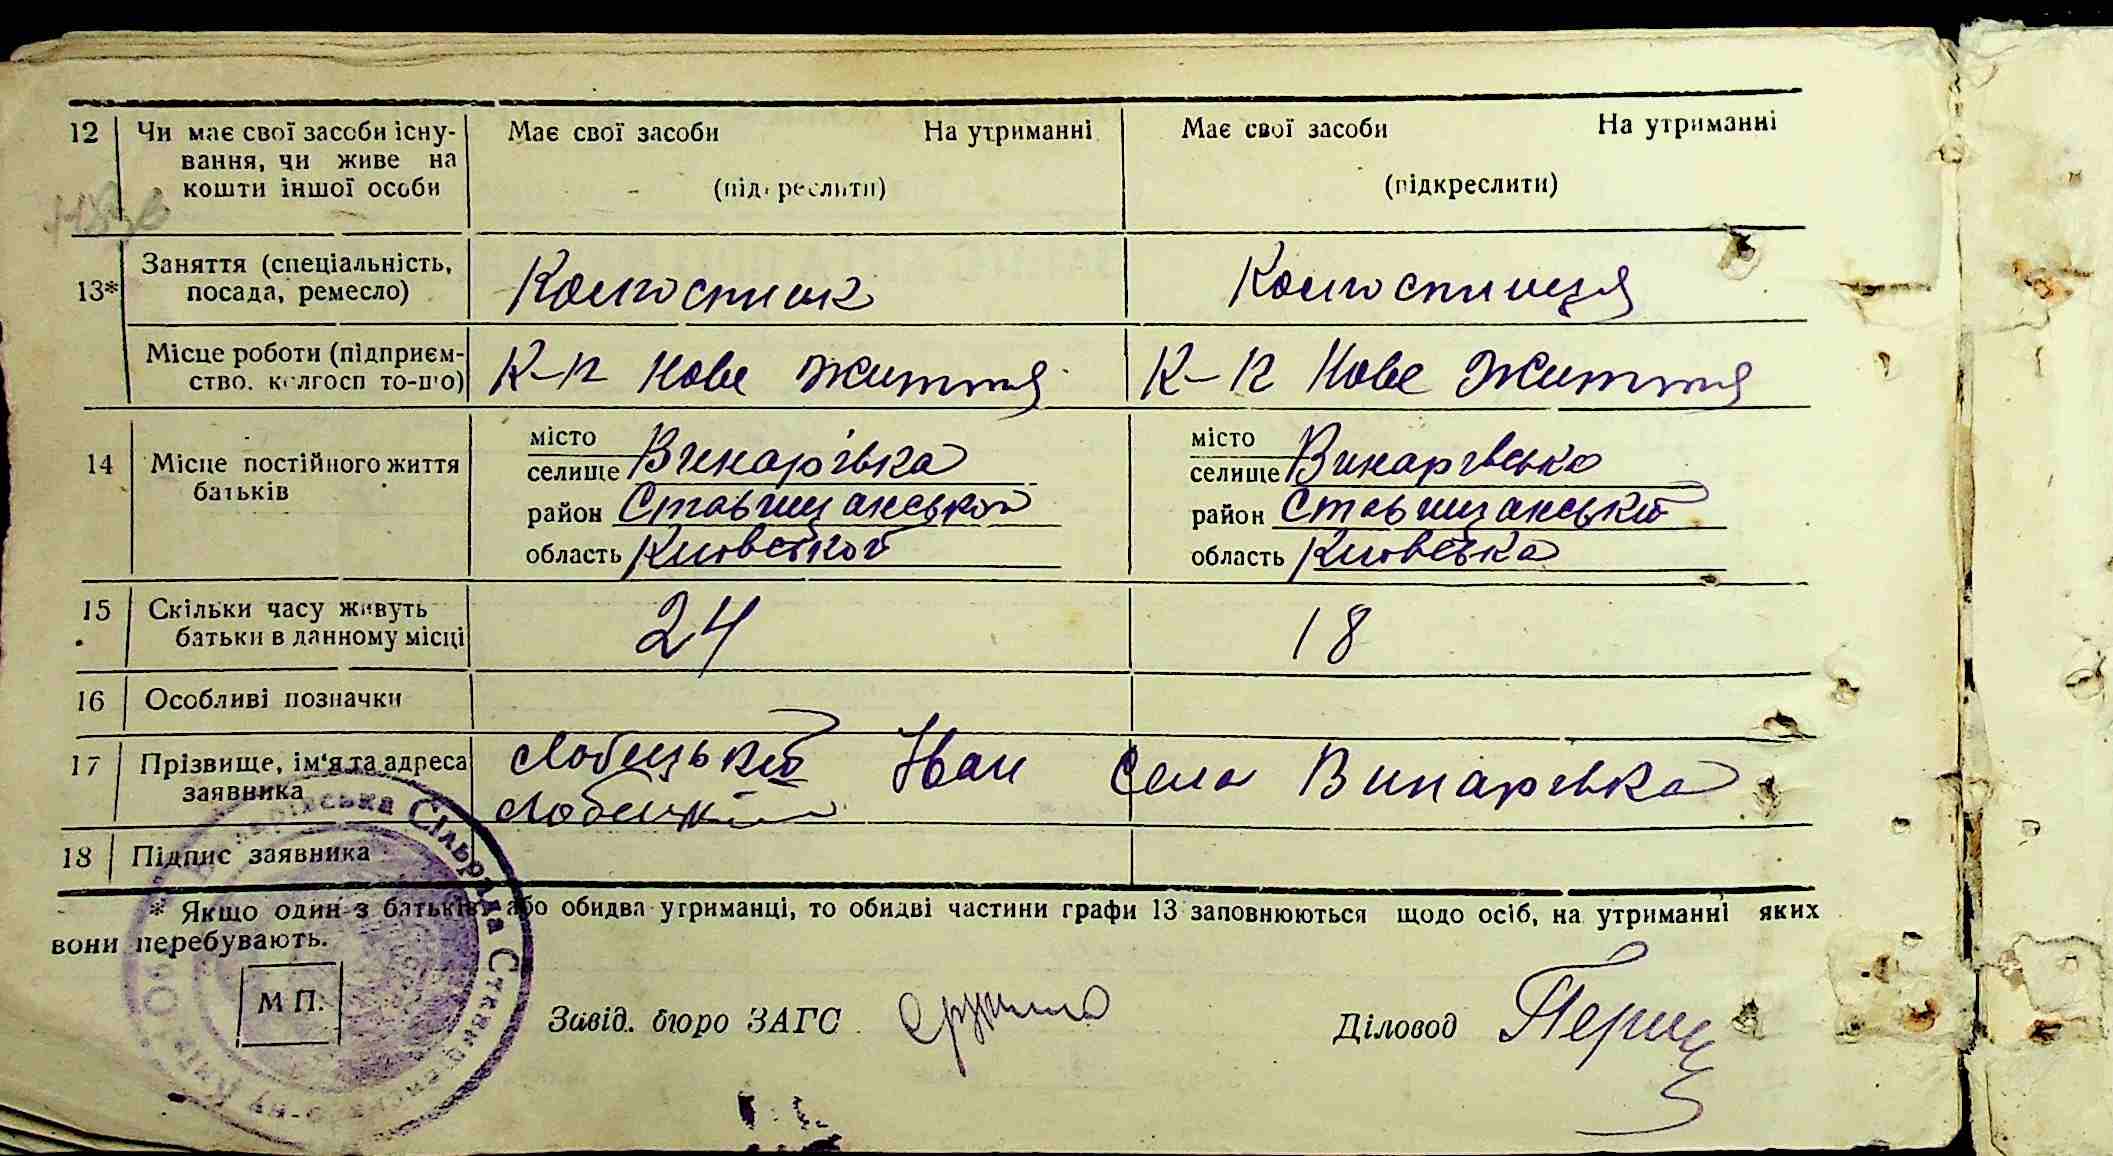 12 Чи має свої засоби існу- Має свої засоби На утриманні Має свої засоби На утриманні
вання, чи живе на
кошти іншої особи (підкреслити) (підкреслити)
13* Заняття (спеціальність, посада, ремесло) Колгоспник Колгоспниця
Місце роботи (підприєм-
ство, колгосп то-що) К-п Нове Життя К-п Нове Життя
14 Місце постійного життя батьків
місто
селище Винарівка
район Ставищанської
область Київської
місто
селище Винарівсько
район Ставищанський
область Київська
15 Скільки часу живуть
батьки в данному місці 24 18
16 Особливі позначки
17 Прізвище, ім'я та адреса
заявника Лобецький Іван Село Винарівка
Лобецкій
18 Підпис заявника
* Якщо один з батьків або обидва утриманці, то обидві частини графи 13 заповнюються щодо осіб, на утриманні яких
вони перебувають.
М П.
Завід. бюро ЗАГС Діловод
Сільрада